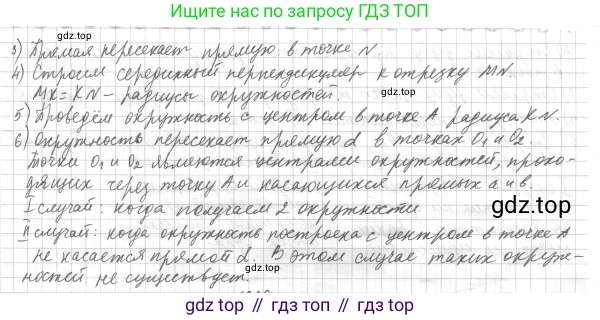 Ищите нас по запросу ГДЗ ТОП
3) Прямая пересекает прямую в точке N.
4) Строим серединный перпендикуляр к отрезку MN.
MK = KN – радиусы окружностей.
5) Проведём окружность с центром в точке A радиуса KN.
6) Окружность пересекает прямую d в точках O₁ и O₂.
Точки O₁ и O₂ являются центрами окружностей, прохо-
дящих через точку A и касающихся прямых a и b.
I случай: когда получаем 2 окружности
gdz.top
II случай: когда окружность построена с центром в точке A
не касается прямой d. В этом случае таких окруж-
ностей не существует.
gdz.top
gdz top // гдз топ // gdz top